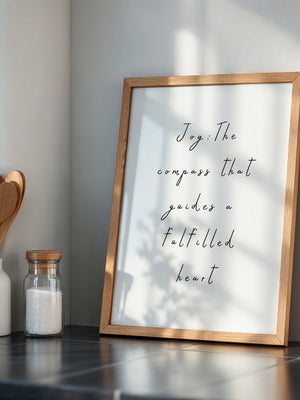 Joy: The
compass that
guides a
fulfilled
heart